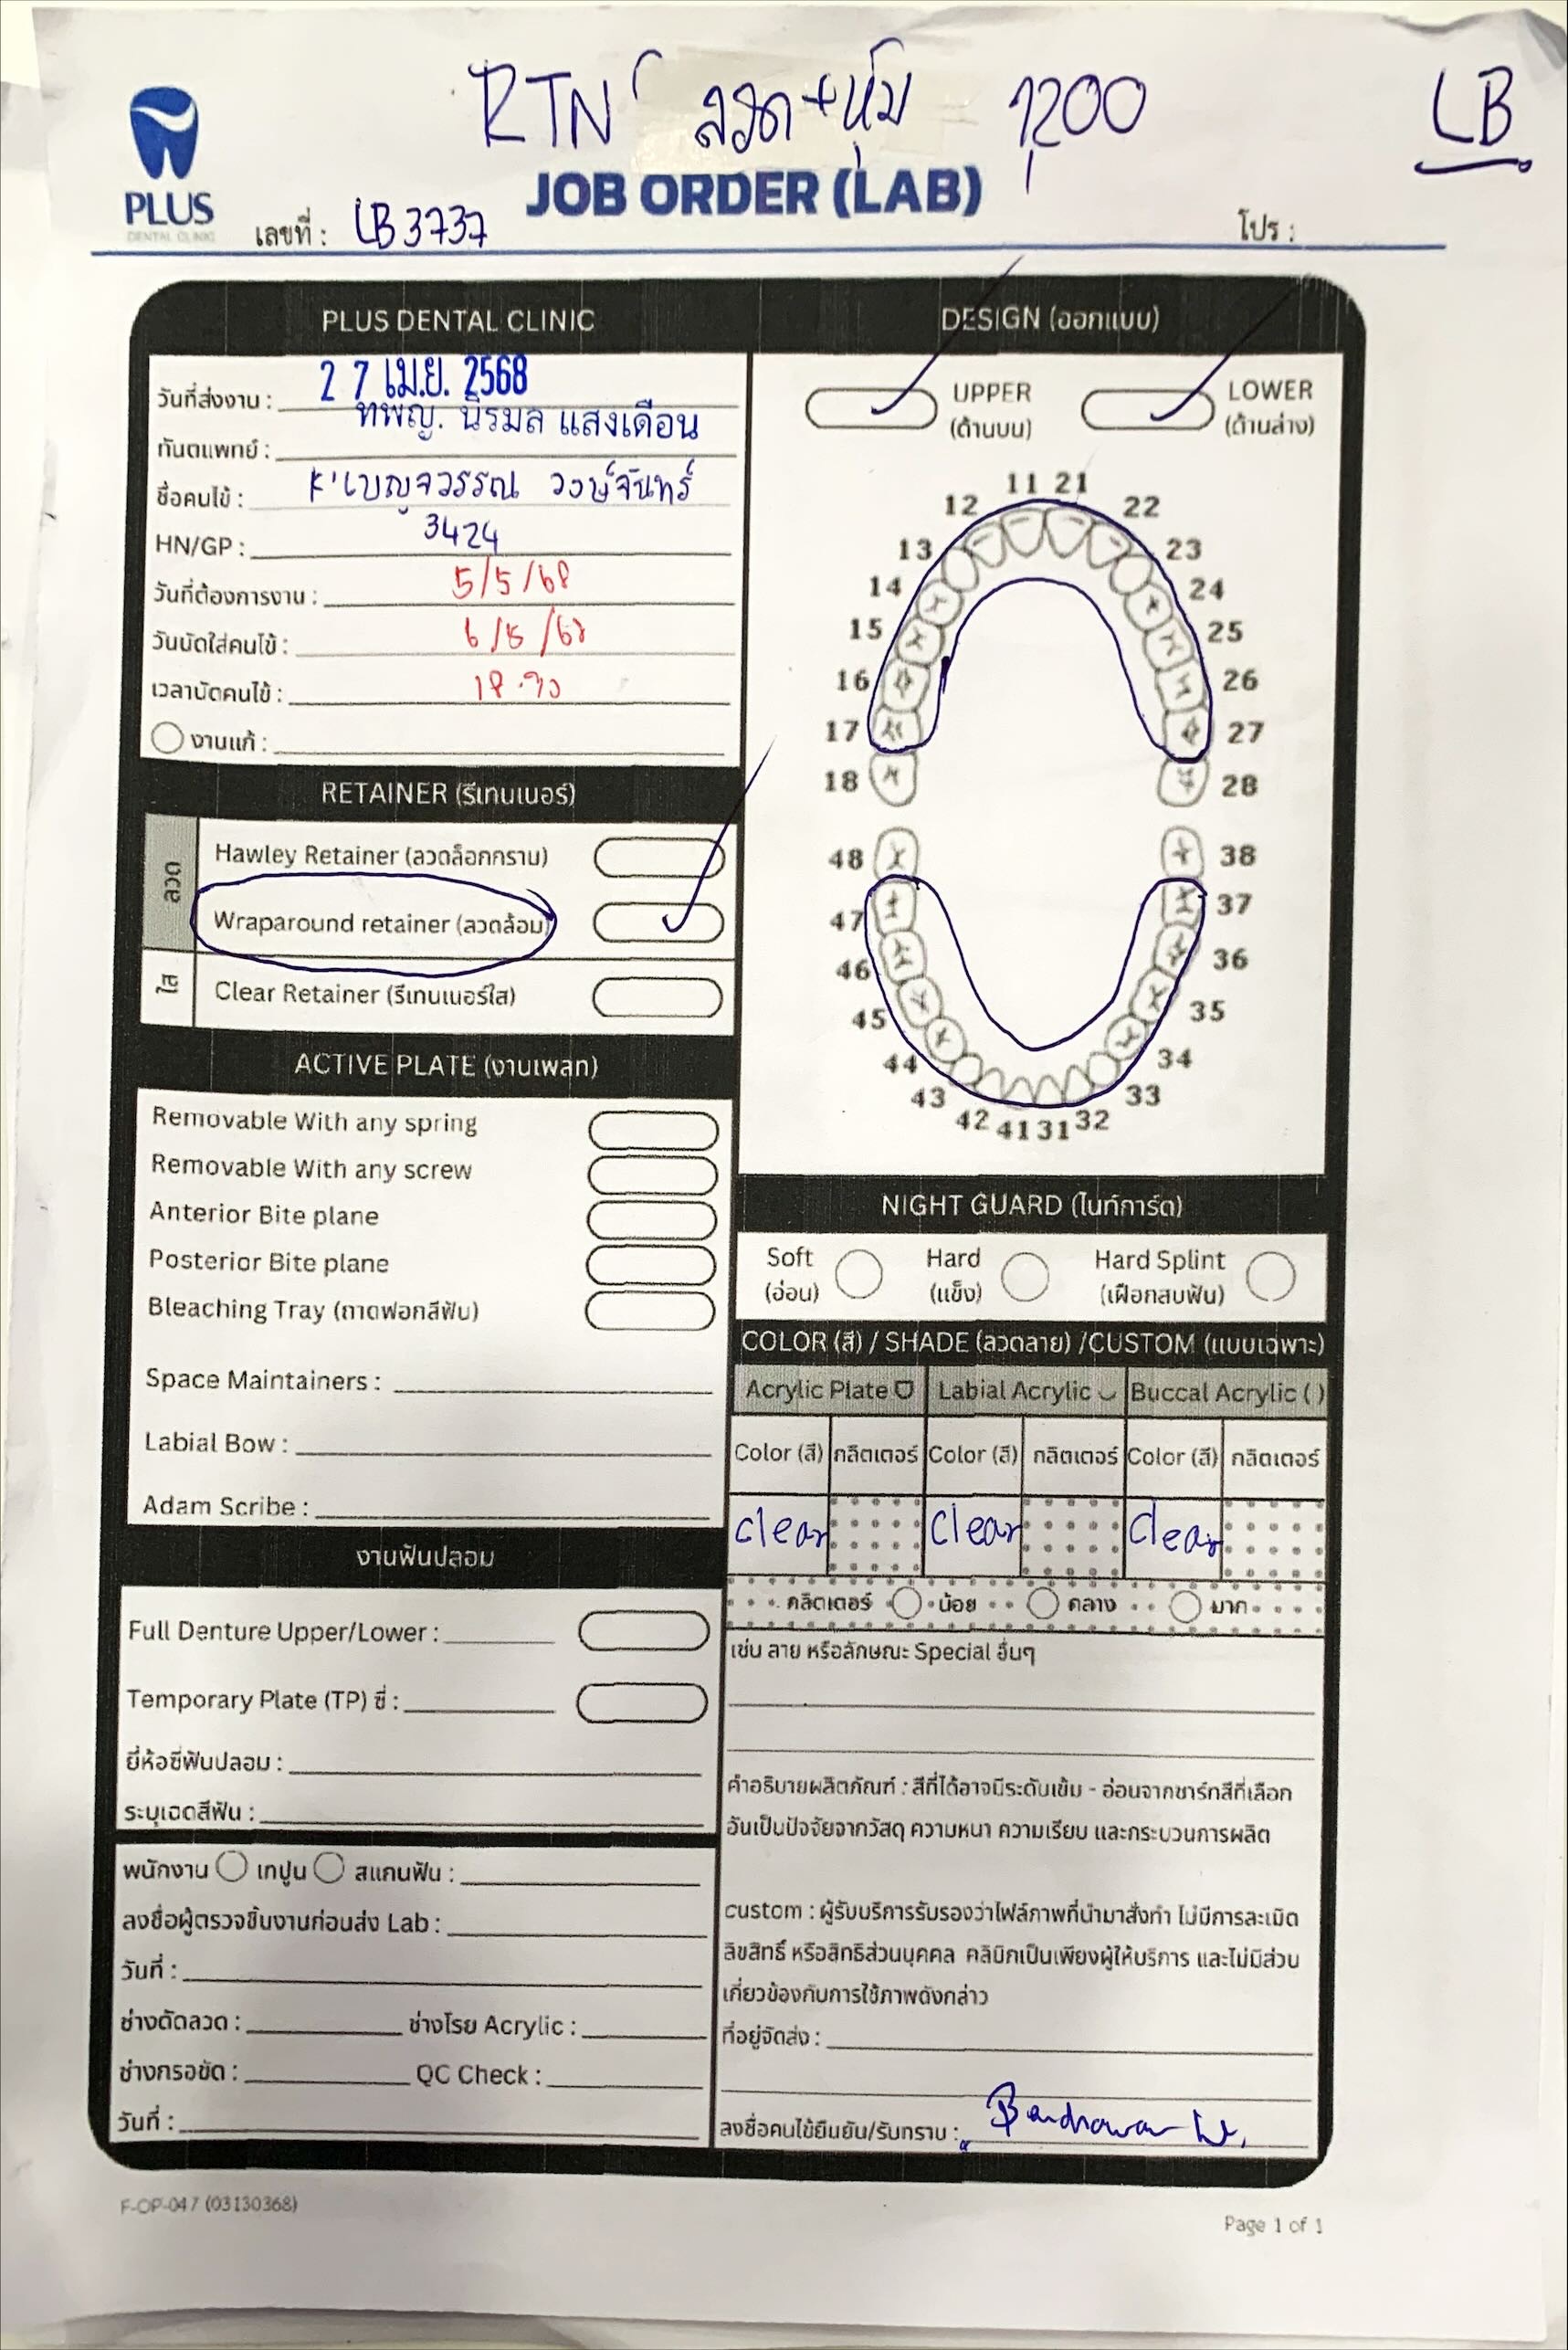 RTN ลวด+หุ้ม 1,200
LB
PLUS
DENTAL CLINIC
JOB ORDER (LAB)
เลขที่ : LB3737
โปร :
PLUS DENTAL CLINIC
วันที่ส่งงาน : 2 7 เม.ย. 2568
ทันตแพทย์ : ทพญ. นิรมล แสงเดือน
ชื่อคนไข้ : K'เบญจวรรณ วงษ์จันทร์
HN/GP : 3424
วันที่ต้องการงาน : 5/5/68
วันนัดใส่คนไข้ : 6/5/68
เวลานัดคนไข้ :
งานแก้ :
RETAINER (รีเทนเนอร์)
ลวด
Hawley Retainer (ลวดล็อกกราม)
Wraparound retainer (ลวดล้อม)
ใส
Clear Retainer (รีเทนเนอร์ใส)
ACTIVE PLATE (งานเพลท)
Removable With any spring
Removable With any screw
Anterior Bite plane
Posterior Bite plane
Bleaching Tray (ถาดฟอกสีฟัน)
Space Maintainers :
Labial Bow :
Adam Scribe :
งานฟันปลอม
Full Denture Upper/Lower :
Temporary Plate (TP) ซี่ :
ยี่ห้อซี่ฟันปลอม :
ระบุเฉดสีฟัน :
พนักงาน เทปูน สแกนฟัน :
ลงชื่อผู้ตรวจชิ้นงานก่อนส่ง Lab :
วันที่ :
ช่างดัดลวด : ช่างโรย Acrylic :
ช่างกรอขัด : QC Check :
วันที่ :
DESIGN (ออกแบบ)
UPPER
(ด้านบน)
LOWER
(ด้านล่าง)
11 21
12 22
13 23
14 24
15 25
16 26
17 27
18 28
48 38
47 37
46 36
45 35
44 34
43 33
42 41 31 32
NIGHT GUARD (ไนท์การ์ด)
Soft
(อ่อน)
Hard
(แข็ง)
Hard Splint
(เฝือกสบฟัน)
COLOR (สี) / SHADE (ลวดลาย) /CUSTOM (แบบเฉพาะ)
Acrylic Plate Labial Acrylic Buccal Acrylic ( )
Color (สี) กลิตเตอร์ Color (สี) กลิตเตอร์ Color (สี) กลิตเตอร์
clear clear clear
กลิตเตอร์ น้อย กลาง มาก
เช่น ลาย หรือลักษณะ Special อื่นๆ
คำอธิบายผลิตภัณฑ์ : สีที่ได้อาจมีระดับเข้ม - อ่อนจากชาร์ทสีที่เลือก
อันเป็นปัจจัยจากวัสดุ ความหนา ความเรียบ และกระบวนการผลิต
custom : ผู้รับบริการรับรองว่าไฟล์ภาพที่นำมาสั่งทำ ไม่มีการละเมิด
ลิขสิทธิ์ หรือสิทธิส่วนบุคคล คลินิกเป็นเพียงผู้ให้บริการ และไม่มีส่วน
เกี่ยวข้องกับการใช้ภาพดังกล่าว
ที่อยู่จัดส่ง :
ลงชื่อคนไข้ยืนยัน/รับทราบ :
F-OP-047 (03130368)
Page 1 of 1